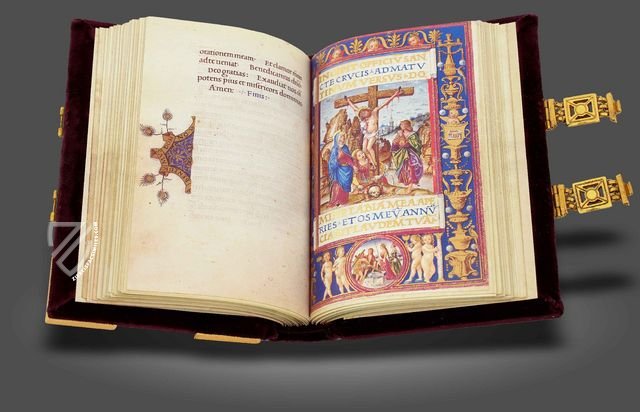 orationem meam. Et clamor meus
ad te veniat. Benedicamus domino
Deo gratias. Exaudiat nos omni
potens pius et misericors dominus
Amen. Finis.
INCIPIT OFFICIV SAN
CTE CRVCIS AD MATV
TINVM VERSVS DO
MI LABIA MEA APE
RIES ET OS MEV ANNV
CIABIT LAVDEM TVA